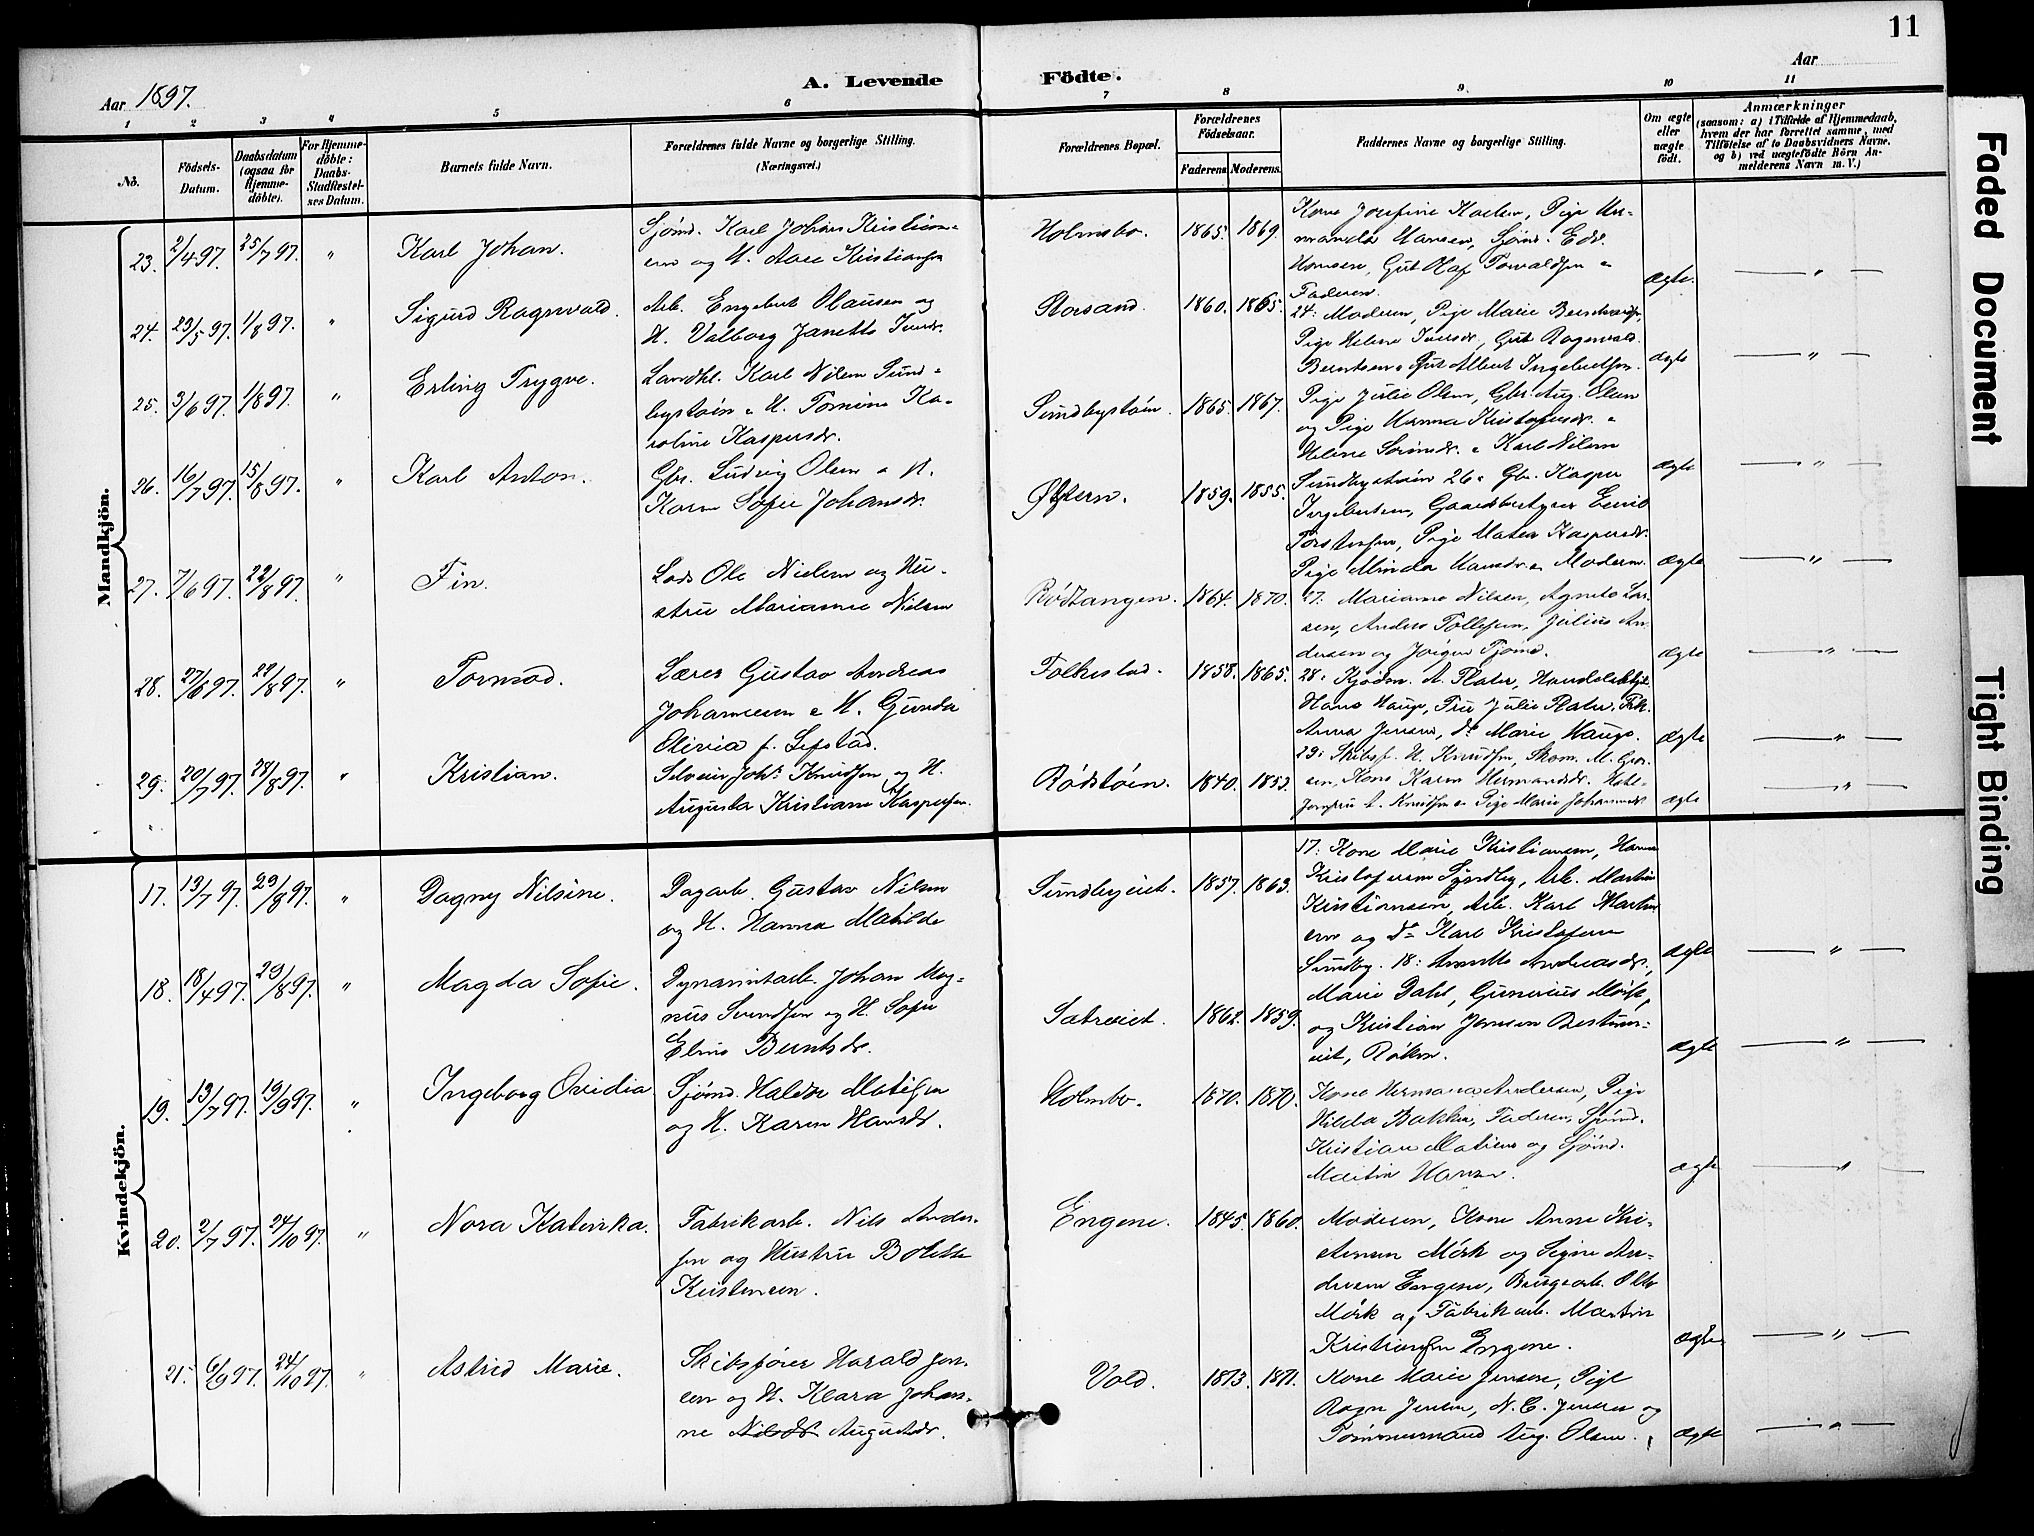 11
A. Levende Födte.
Aar 1897.
Aar
1 2 3 4 5 6 7 8 9 10 11
No.
Födsels-Datum.
Daabsdatum (ogsaa for Hjemmedöbte).
For Hjemmedöbte: Daabs-Stadfæstelses Datum.
Barnets fulde Navn.
Forældrenes fulde Navne og borgerlige Stilling.
(Næringsvei.)
Forældrenes Bopæl.
Forældrenes Födselsaar.
Faderens. Moderens.
Faddernes Navne og borgerlige Stilling.
Om ægte eller uægte födt.
Anmærkninger
(saasom: a) i Tilfælde af Hjemmedaab, hvem der har forrettet samme, med Tilföielse af to Daabsvidners Navne, og b) ved uægtefödte Börn Anmelderens Navn m. V.)
Mandkjön.
23. 2/4 97. 25/7 97. " Karl Johan.
Sjömd. Karl Johan Kristian-
sen og H. Aase Kristiansen
Holmsbo. 1865. 1869.
Kone Josefine Karlsen, Pige
Hansen, Sjömd. Edv.
Hansen, Gut Olaf Torvaldsen
Faderen. ægte. "
24. 23/5 97. 1/8 97. " Sigurd Ragnvald.
Arb. Engebret Olausen og
H. Valborg Janette Iversdr.
Storsand. 1860. 1865.
24: Moderen, Pige Marie
Pige Helene Iversdr, Gut Ragnvald
Berntsen Gut Albert Ingebretsen. ægte "
25. 3/6 97. 1/8 97. " Erling Trygve.
Landhl. Karl Nilsen Sund-
bystöen H. Tomine Ka-
roline Kaspersdr.
Sundbystöen. 1865. 1867.
Pige Julie Olsen, Gbr. Aug. Olsen
og Pige Hanna Kristofersdr.
Helene Karl Nilsen
Sundbystöen ægte "
26. 16/7 97. 15/8 97. " Karl Anton.
Gbr. Ludvig Olsen H.
Karen Sofie Johansdr.
1859. 1855.
26: Gbr. Kasper
Ingebretsen, Gaardsbestyrer Emil
Torstensen, Pige Matea Kaspersdr.
Pige Minda Hansdr. Moderen. ægte "
27. 7/6 97. 22/8 97. " Fin.
Lods Ole Nielsen og Hu-
stru Marianne Nilsen
Rödtangen. 1864. 1870.
27: Marianne Nilsen, Agnete Lar-
sen, Anders Tollefsen, Julius An-
dersen og Jörgen Tjöme. ægte "
28. 27/6 97. 22/8 97. " Tormod.
Lærer Gustav Andreas
Johannesen H. Gunda
Olivia f. Sefstad.
Folkestad. 1858. 1865.
28: Kjöbm. A. Plater,
Hans Hauge, Fru Julie Plater, Frk.
Anna Jensen, do Marie Hauge. ægte "
29. 20/7 97. 28/8 97. " Kristian.
Selveier Johs. Knudsen og H.
Augusta Kristiane Kaspersen.
Rödstöen. 1840. 1853.
29: Skibsf. H. Knudsen, Skom. M.
Kone Karen Hermandsdr,
Jomfru A. Knudsen Pige Marie Johannesdr ægte "
Kvindekjön.
17. 13/7 97. 29/8 97. " Dagny Nilsine.
Dagarb. Gustav Nilsen
og H. Hanna Matilde
Sundbyeiet. 1857. 1863.
17: Kone Marie Kristiansen, Hanna
Kristofersen Sundby, Arb. Martin
Kristiansen, Arb. Karl Martin-
sen og do Karl Kristofersen
Sundby. ægte "
18. 18/4 97. 29/8 97. " Magda Sofie.
Dynamitarb. Johan Mag-
nus Svendsen og H. Sofie
Eline Berntsdr.
Sætreeiet. 1862. 1859.
18: Annette Andreasdr.,
Marie Dahl, Gunerius Mörk,
og Kristian Jensen
eiet, Röken. ægte "
19. 13/7 97. 19/9 97. " Ingeborg Ovidia
Sjömd. Haldor Matisen
og H. Karen Hansdr.
Holmsbo. 1870. 1870.
Kone Hermana Andersen, Pige
Hilda Bakken, Faderen, Sjömd.
Kristian Matisen og Sjömd.
Martin Hansen. ægte "
20. 2/7 97. 24/10 97. " Nora Katinka.
Fabrikarb. Nils Ander-
sen og Hustru Bolette
Kristensen.
Engene. 1845. 1860.
Moderen, Kone Anne Kri-
stensen Mörk og Signe An-
dersen Engene, Brugsarb. Otto
Mörk og Fabrikarb. Martin
Kristiansen Engene. ægte "
21. 6/9 97. 24/10 97. " Astrid Marie.
Skibsförer Harald Jen-
sen og H. Klara Johan-
ne Nilsdr Augustsdr.
Vold. 1873. 1871.
Kone Marie Jensen, Pige
Ragna Jensen, N. C. Jensen og
Tömmermand Aug. Olsen. ægte "
Faded Document
Tight Binding